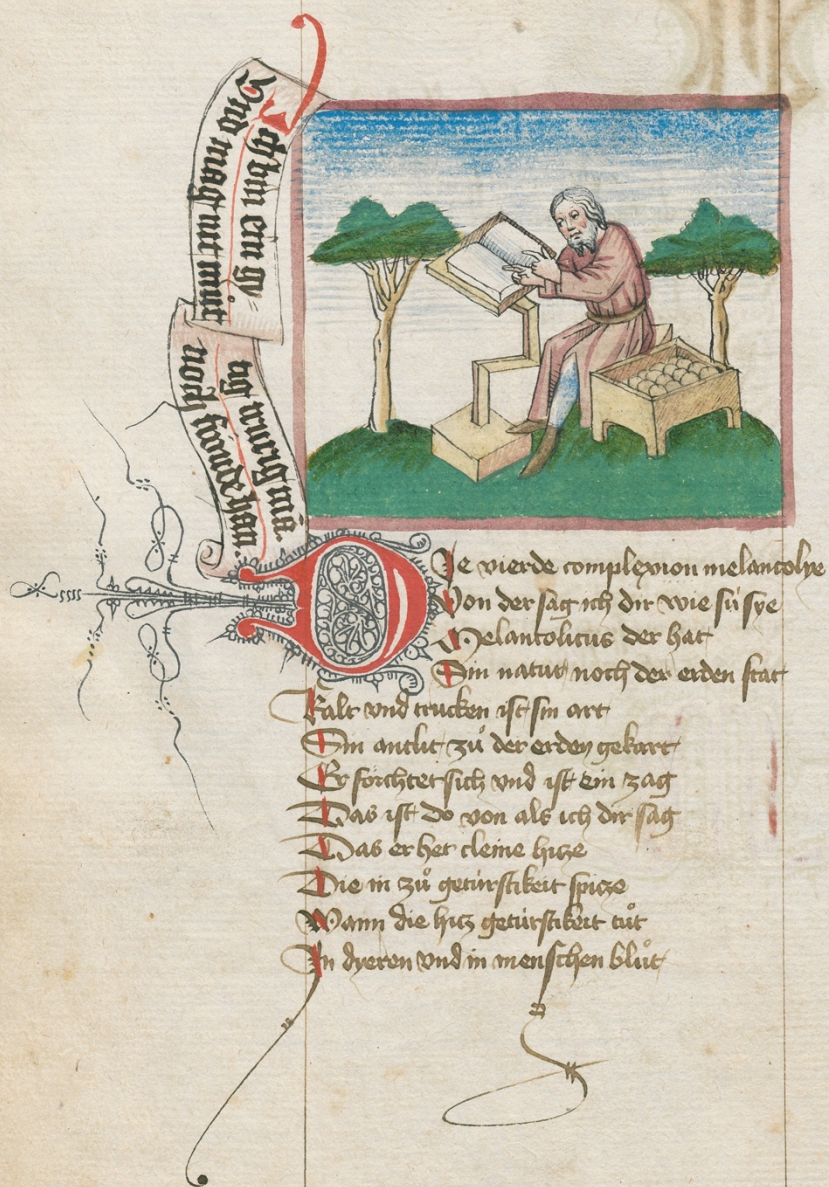 Ich bin ein gy=
tig miriguis.
Vnd mag nit mut
noch froude han.
Die vierde complexion melancolye
Von der sag ich dir wie sú sye
Melancolicus der hat
Sin natur noch der erden stat
Kalt vnd trucken ist sin art
Sin antlit zů der erden gekart
Er förchtet sich vnd ist ein zag
Das ist do von als ich dir sag
Das er het cleine hicze
Die in zů getúrstikeit spicze
Wann die hicz getúrstikeit tůt
In dyeren vnd in menschen blůt